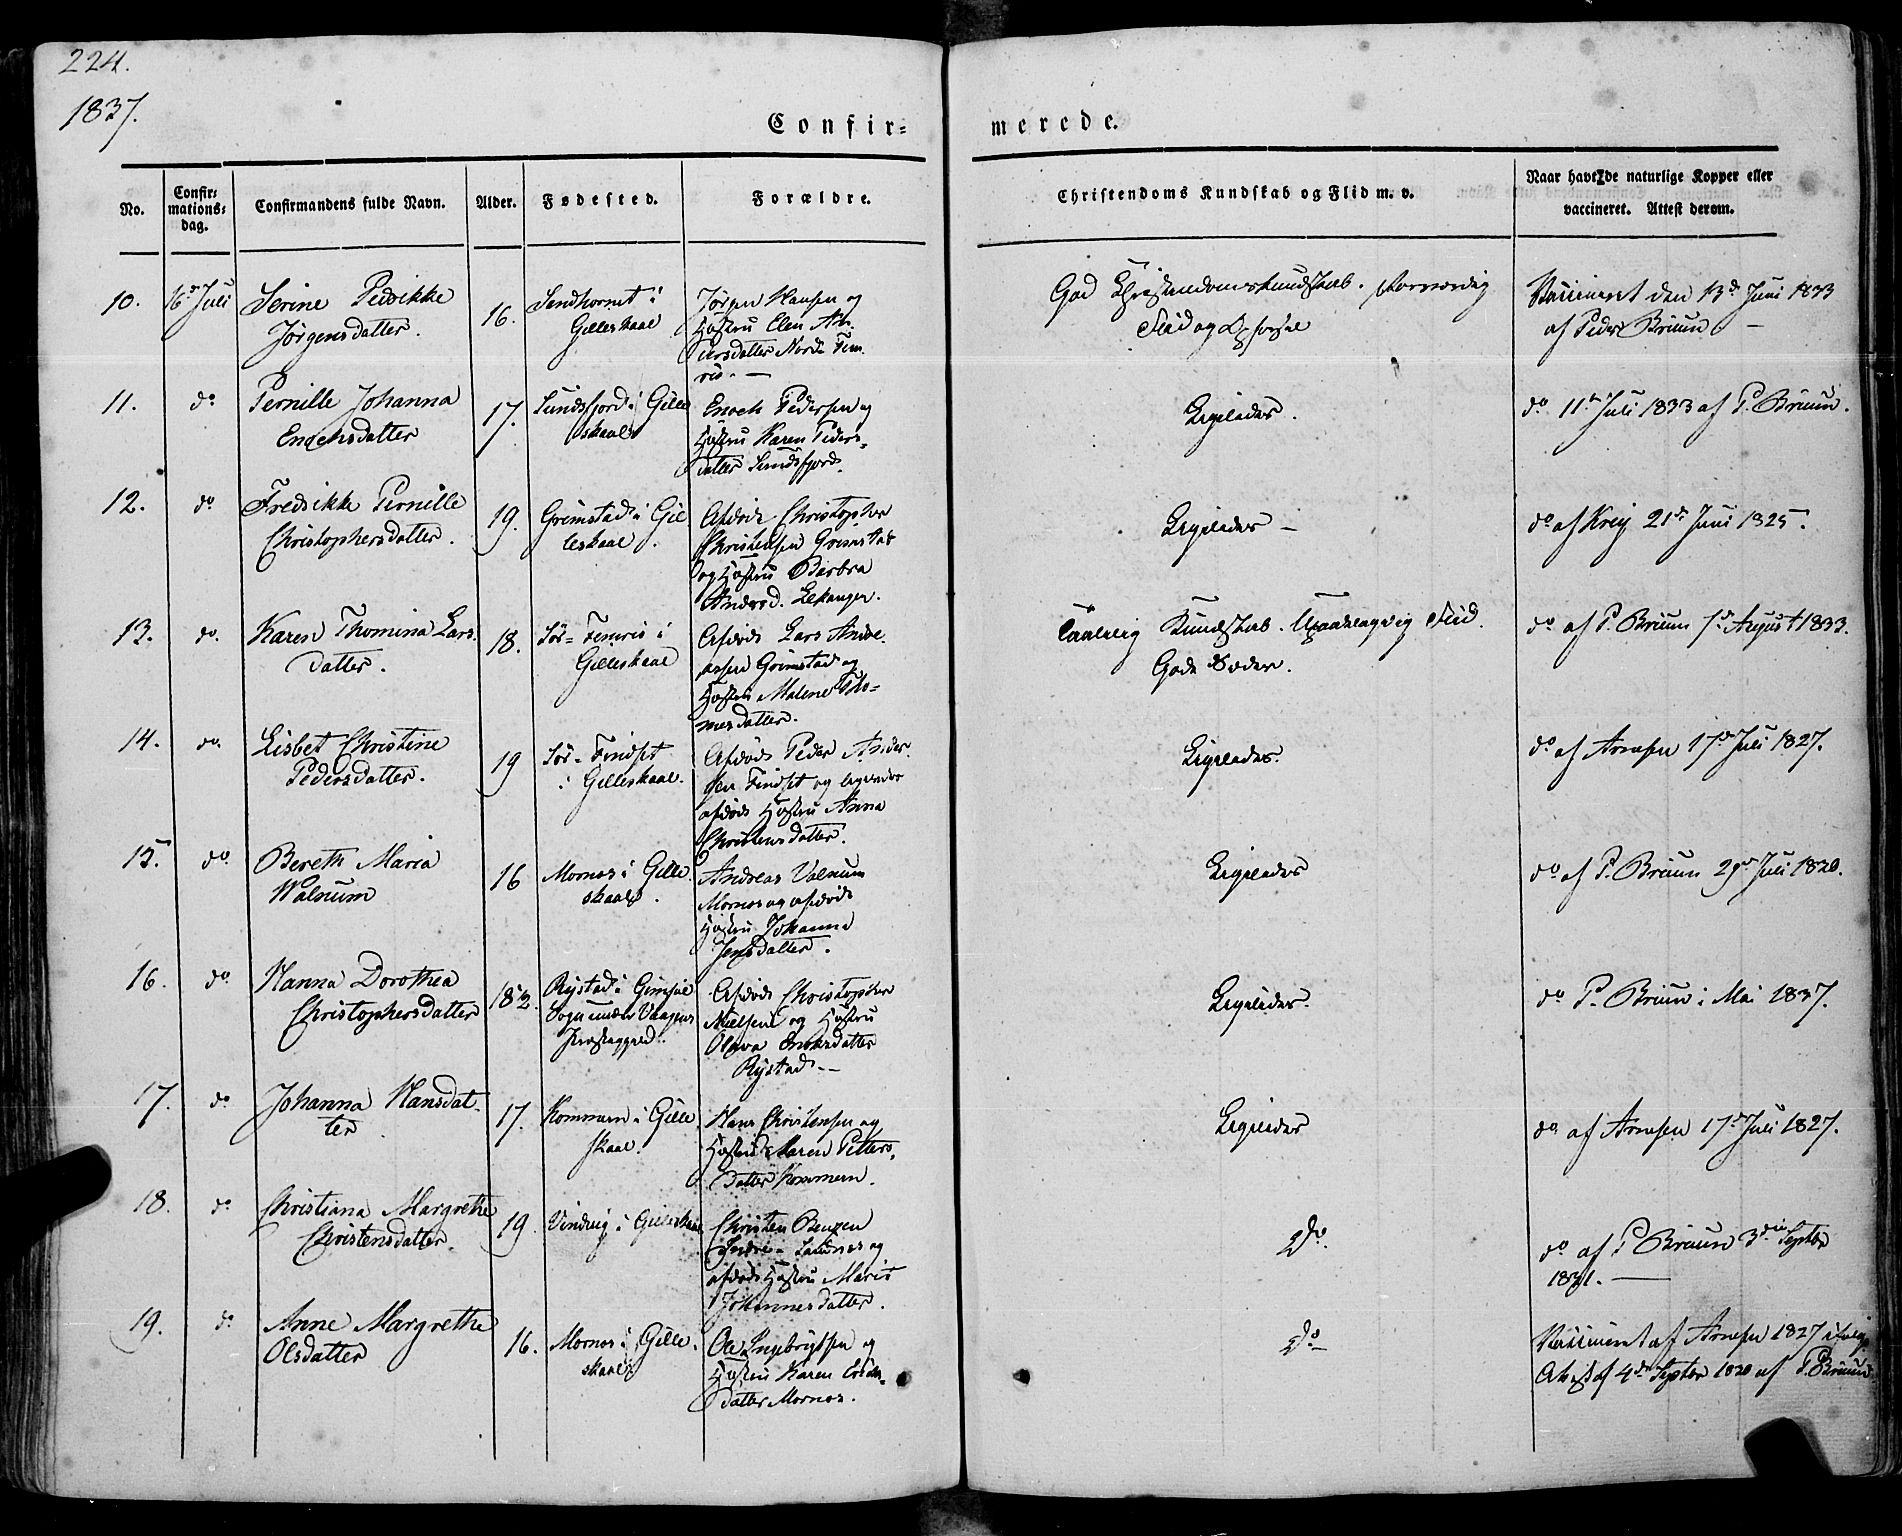 224.
1837.
Confir=
merede.
No.
Confir=
mations=
dag.
Confirmandens fulde Navn.
Alder.
Fødested.
Forældre.
Christendoms Kundskab og Flid m. v.
Naar havt de naturlige Kopper eller
vaccineret. Attest derom.
10. 16de Juli Serine Pedrikke 16. Sandhornet i Jørgen Hansen og God Christendomskundskab. Vaccineret den 13de Juni 1833
Jørgensdatter. Gilleskaal Hustru Elen An- Flid og af Peder Bruun —
dersdatter Nordre Fem-
ris. —
11. do Pernille Johanna 17. Sundsfjord i Gille Enoch Pedersen og Ligeledes. do 11te Juli 1833 af P. Bruun.
Enochsdatter skaal Hustru Karen Peders-
datter Sundsfjord.
12. do Fredrikke Pernille 19. Grimstad i Gil Afdøde Christopher Ligeledes — do af Krey 21de Juni 1825.
Christophersdatter. leskaal. Christensen Grimstad
og Hustru Barbra
Andersd. Lekanger.
13. do. Karen Thomina Lars 18. Sør-Femris i Afdøde Lars Andre- Taalelig Kundskab. Flid. do af P. Bruun 1ste August 1833.
datter. Gilleskaal asen Grimstad og Gode Sæder.
Hustru Malene Tho-
mesdatter.
14. do. Lisbet Christine 19 Sør-Findset Afdøde Peder Ander Ligeledes. do af Arnesen 17de Juli 1827.
Pedersdatter. i Gilleskaal. sen Findset og ligeledes
afdøde Hustru Anna
Christensdatter.
15. do. Bereth Maria 16 Mornes i Gille Andreas Valnum Ligeledes do af P. Bruun 29de Juli 1830.
Walnum skaal. Mornes og afdøde
Hustru Johanna
Jensdatter.
16. do Hanna Dorothea 18½ Rystad i Gimsøe Afdøde Christopher Ligeledes. do P. Bruun i Mai 1837.
Christophersdatter Sogn under Vaagens Nielsen og Hustru
Præstegjeld. Olava Enochsdatter
Rystad. —
17. do Johanna Hansdat- 17. Kommern i Gille Hans Christensen og Ligeledes do af Arnesen 17de Juli 1827.
ter skaal. Hustru Maren Petters
datter Kommern.
18. do Christiana Margrethe 19. Vindvig i Gilleskaal Christen Benzen Do. do af P Bruun 3die Septbr
Christensdatter. Indre-Sandnes og 1831. —
afdøde Hustru Marit
Johannesdatter.
19. do Anne Margrethe 16. Mornes i Gille Ole Ingebrigtsen og Do Vaccineret af Arnesen 1827 ifølge
Olsdatter skaal Hustru Karen Attest af 4de Septbr 1830 af P. Bruun
datter Mornes.